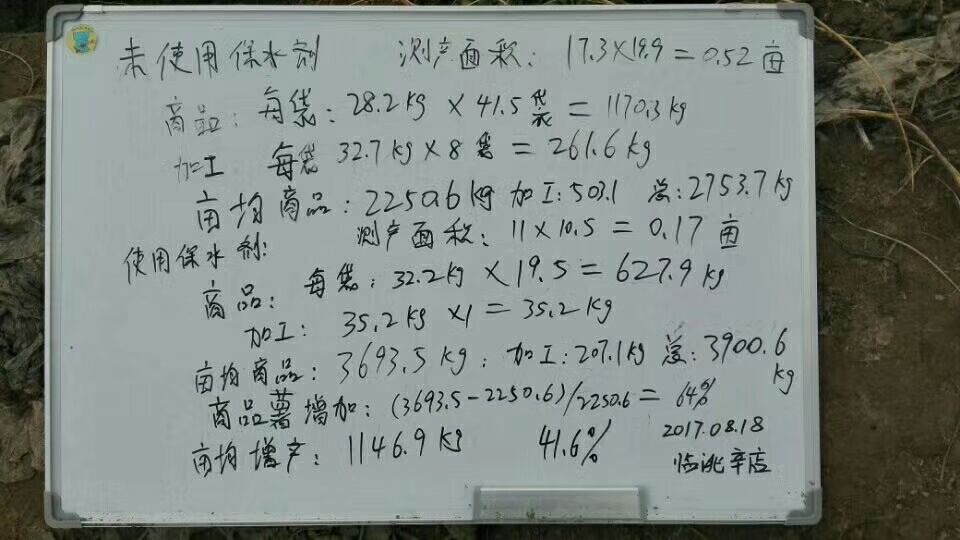 未使用保水剂 测产面积: 17.3×19.9=0.52亩
商品: 每袋: 28.2kg × 41.5袋 = 1170.3kg
加工 每袋 32.7kg×8袋 = 261.6kg
亩均商品: 2250.6kg 加工: 503.1 总: 2753.7kg
使用保水剂: 测产面积: 11×10.5=0.17亩
商品: 每袋: 32.2kg × 19.5 = 627.9kg
加工: 35.2kg ×1 = 35.2kg
亩均商品: 3693.5kg; 加工: 207.1kg 总: 3900.6kg
商品薯增加: (3693.5-2250.6)/2250.6 = 64%
亩均增产: 1146.9kg 41.6%
2017.08.18
临洮辛店